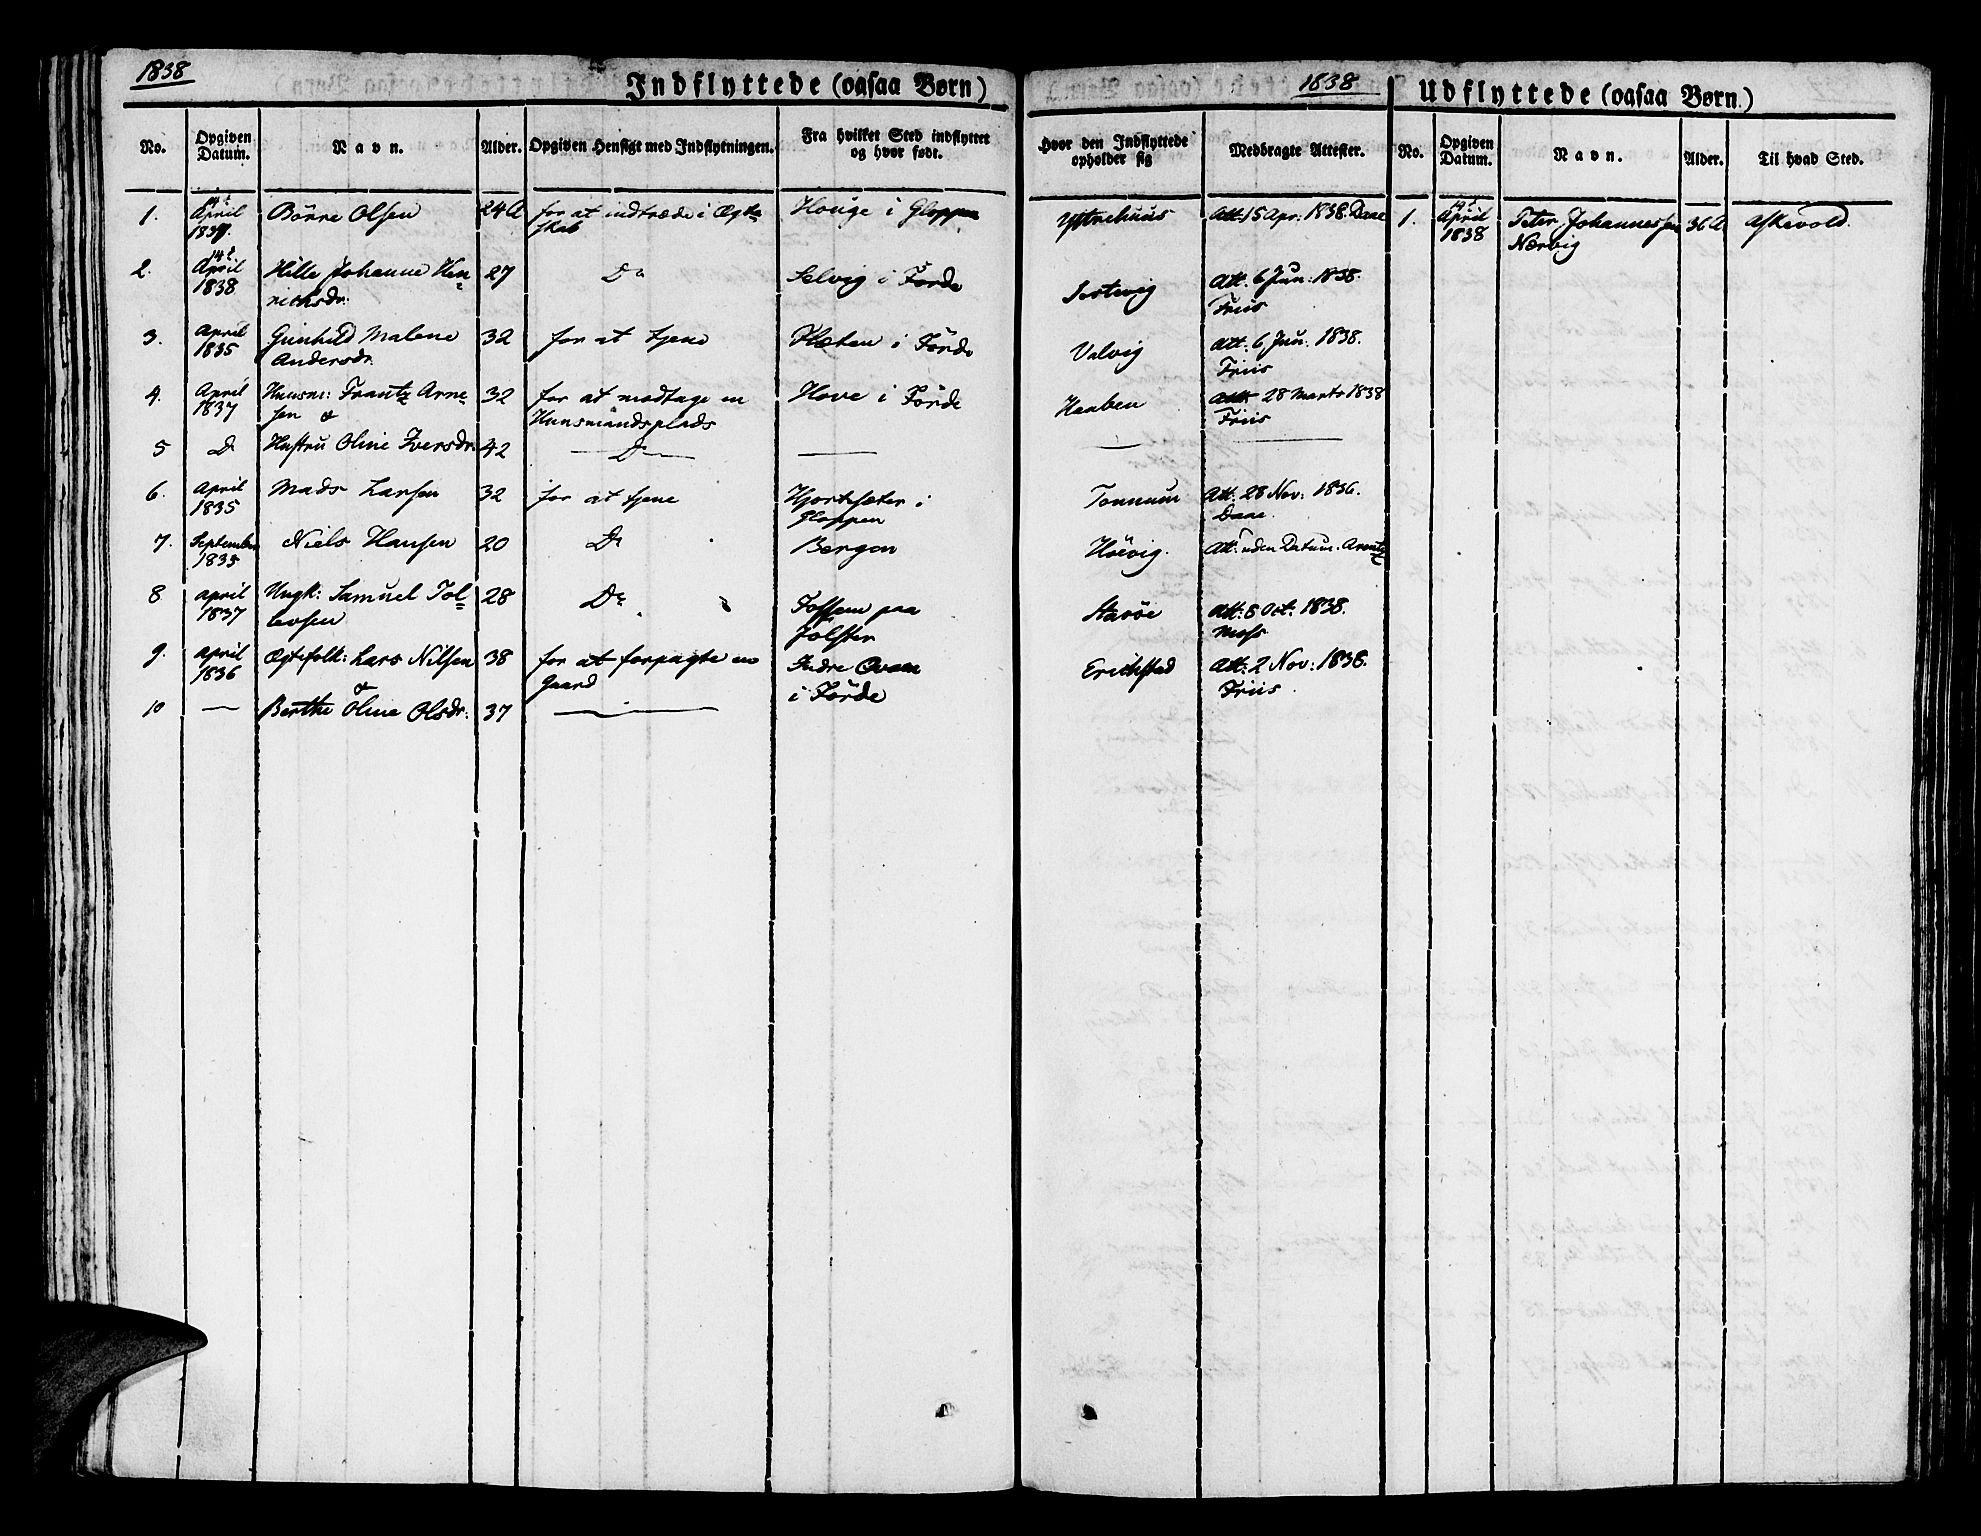 1838
Indflyttede (ogsaa Børn)
No.
Opgiven Datum.
Navn.
Alder.
Opgiven Hensigt med Indflytningen.
Fra hvilket Sted indflyttet og hvor født.
1. 14e April Börre Olsen 24 A for at indtræde i Ægte= Houge i Gloppen
skab
2. 14e April 1838 Hille Johanne Hen= 27 Do Selvig i Förde
richsdr:
3. April 1835 Gunhild Malene 32 for at tjene i Förde
Andersdr.
4. April 1837 Huusm: Frantz Arne= 32 for at modtage en Hove i Förde
sen & Huusmandsplads
5 Do Hustru Oline Iversdr. 42 — Do —
6. April 1835 Mads Larsen 32 for at tjene Hjortesæter i
Gloppen
7. September 1835 Niels Hansen 20 Do Bergen
8 April 1837 Ungk: Samuel Tol= 28 Do Fossem paa
levsen Jölster
9. April 1836 Ægtefolk: Lars Nilsen 38 for at forpagte en Indre Qvam
& Gaard i Förde
10 — Berthe Oline Olsdr: 37 —
1838
Udflyttede (ogsaa Børn.)
Hvor den Indflyttede opholder sig
Medbragte Attester.
No.
Opgiven Datum.
Navn.
Alder.
Til hvad Sted.
Ystrehuus Att: 15 Apr: 1838. Daae 1. 14e April 1838 Peter Johannessen 36 A Askevold.
Nærvig
Att. 6 Jun: 1838.
Friis
Valvig Att. 6 Jun: 1838.
Friis
28 Marts 1838
Friis
—
Tonnum Att: 28 Nov: 1836.
Daae.
Höevig. Att: uden Datum. Arentz
Stavöe Att: 8 Oct: 1838.
Moss
Erichstad Att: 2 Nov: 1838.
Friis.